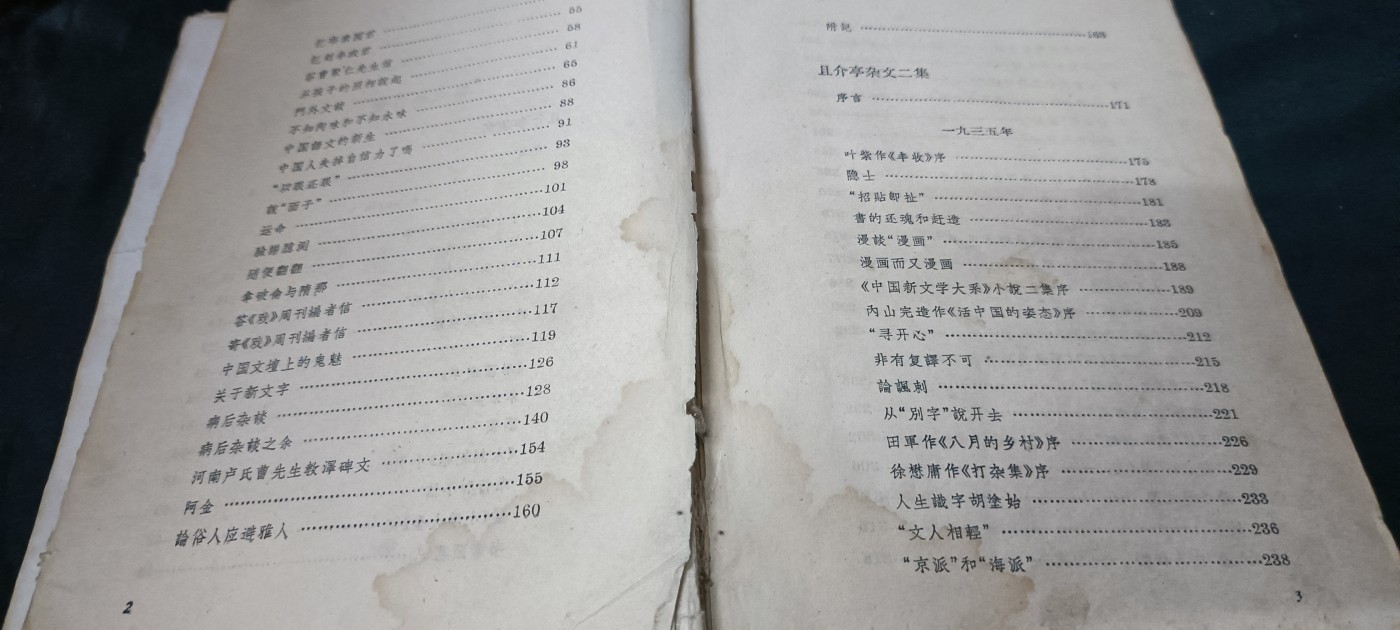 忆韋素園君
忆刘半农君 55
答曹聚仁先生信 58
从孩子的照相說起 61
門外文談 65
不知肉味和不知水味 86
中国語文的新生 88
中国人失掉自信力了嗎 91
“以眼还眼” 93
說“面子” 98
运命 101
臉譜臆測 104
随便翻翻 107
拿破侖与隋那 111
答《戏》周刊編者信 112
寄《戏》周刊編者信 117
中国文壇上的鬼魅 119
关于新文字 126
病后杂談 128
病后杂談之余 140
河南卢氏曹先生教澤碑文 154
阿金 155
論俗人应避雅人 160
2
附記 163
且介亭杂文二集
序言 171
一九三五年
叶紫作《丰收》序 175
隐士 178
“招貼卽扯” 181
書的还魂和赶造 183
漫談“漫画” 185
漫画而又漫画 188
《中国新文学大系》小說二集序 189
內山完造作《活中国的姿态》序 209
“寻开心” 212
非有复譯不可 215
論諷刺 218
从“別字”說开去 221
田軍作《八月的乡村》序 226
徐懋庸作《打杂集》序 229
人生識字胡塗始 233
“文人相輕” 236
“京派”和“海派” 238
3